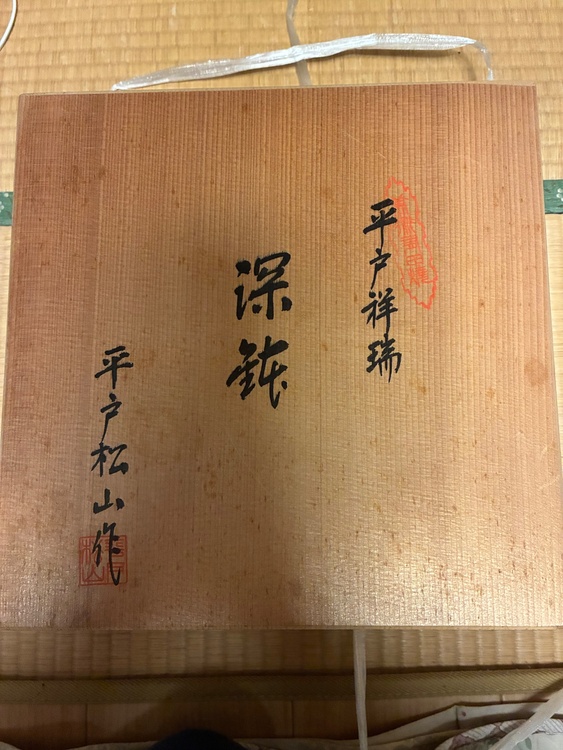 平戸祥瑞
深鉢
平戸松山作